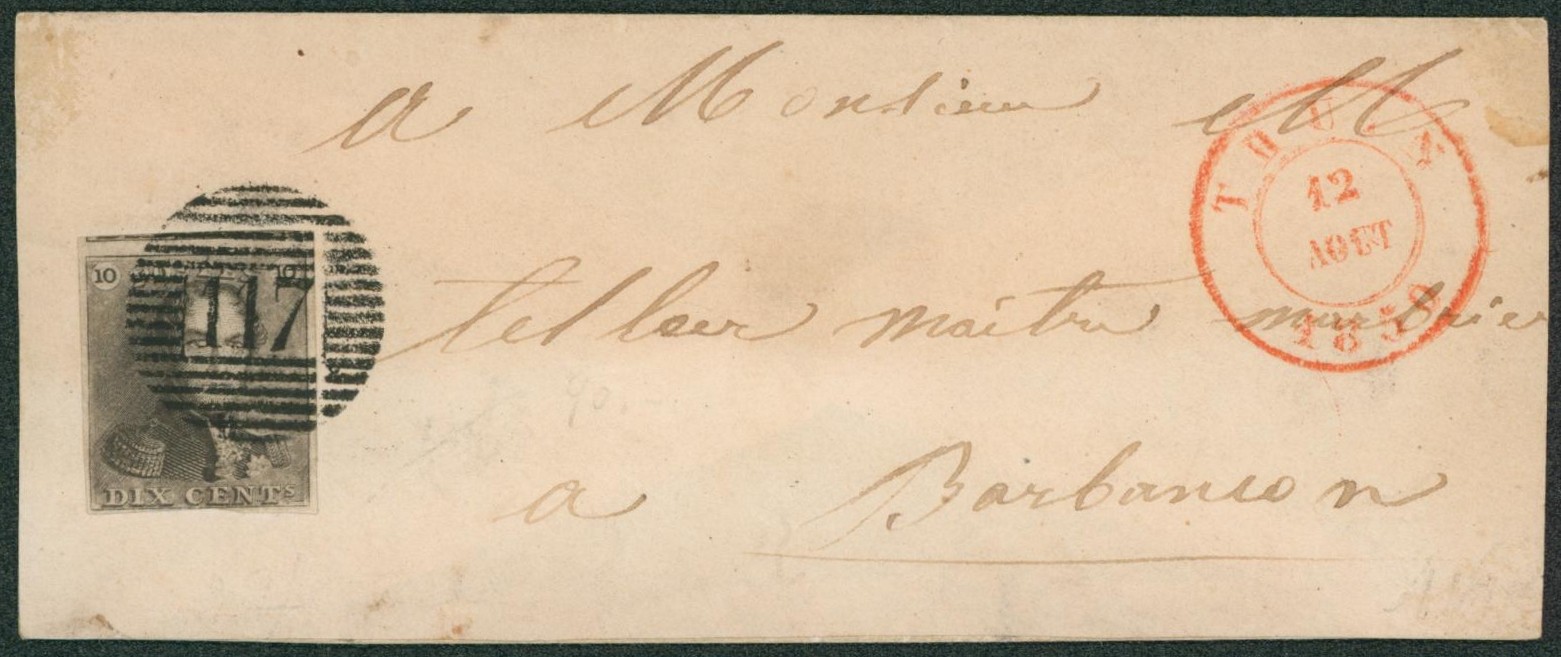 a Monsieur M
maître marbrier
a Barbancon
THUIN
12
AOUT
1850
10 10
117
DIX CENTS
90.-